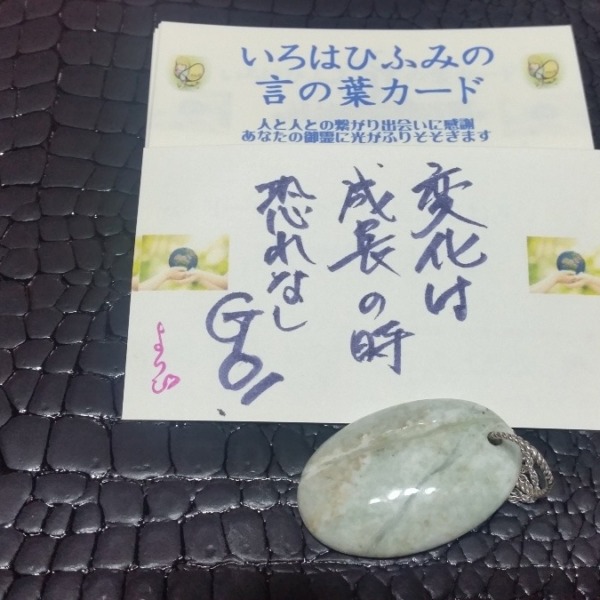 いろはひふみの
言の葉カード
人と人との繋がり出会いに感謝
あなたの御霊に光がふりそそぎます
変化は
成長の時
恐れなし
GO!